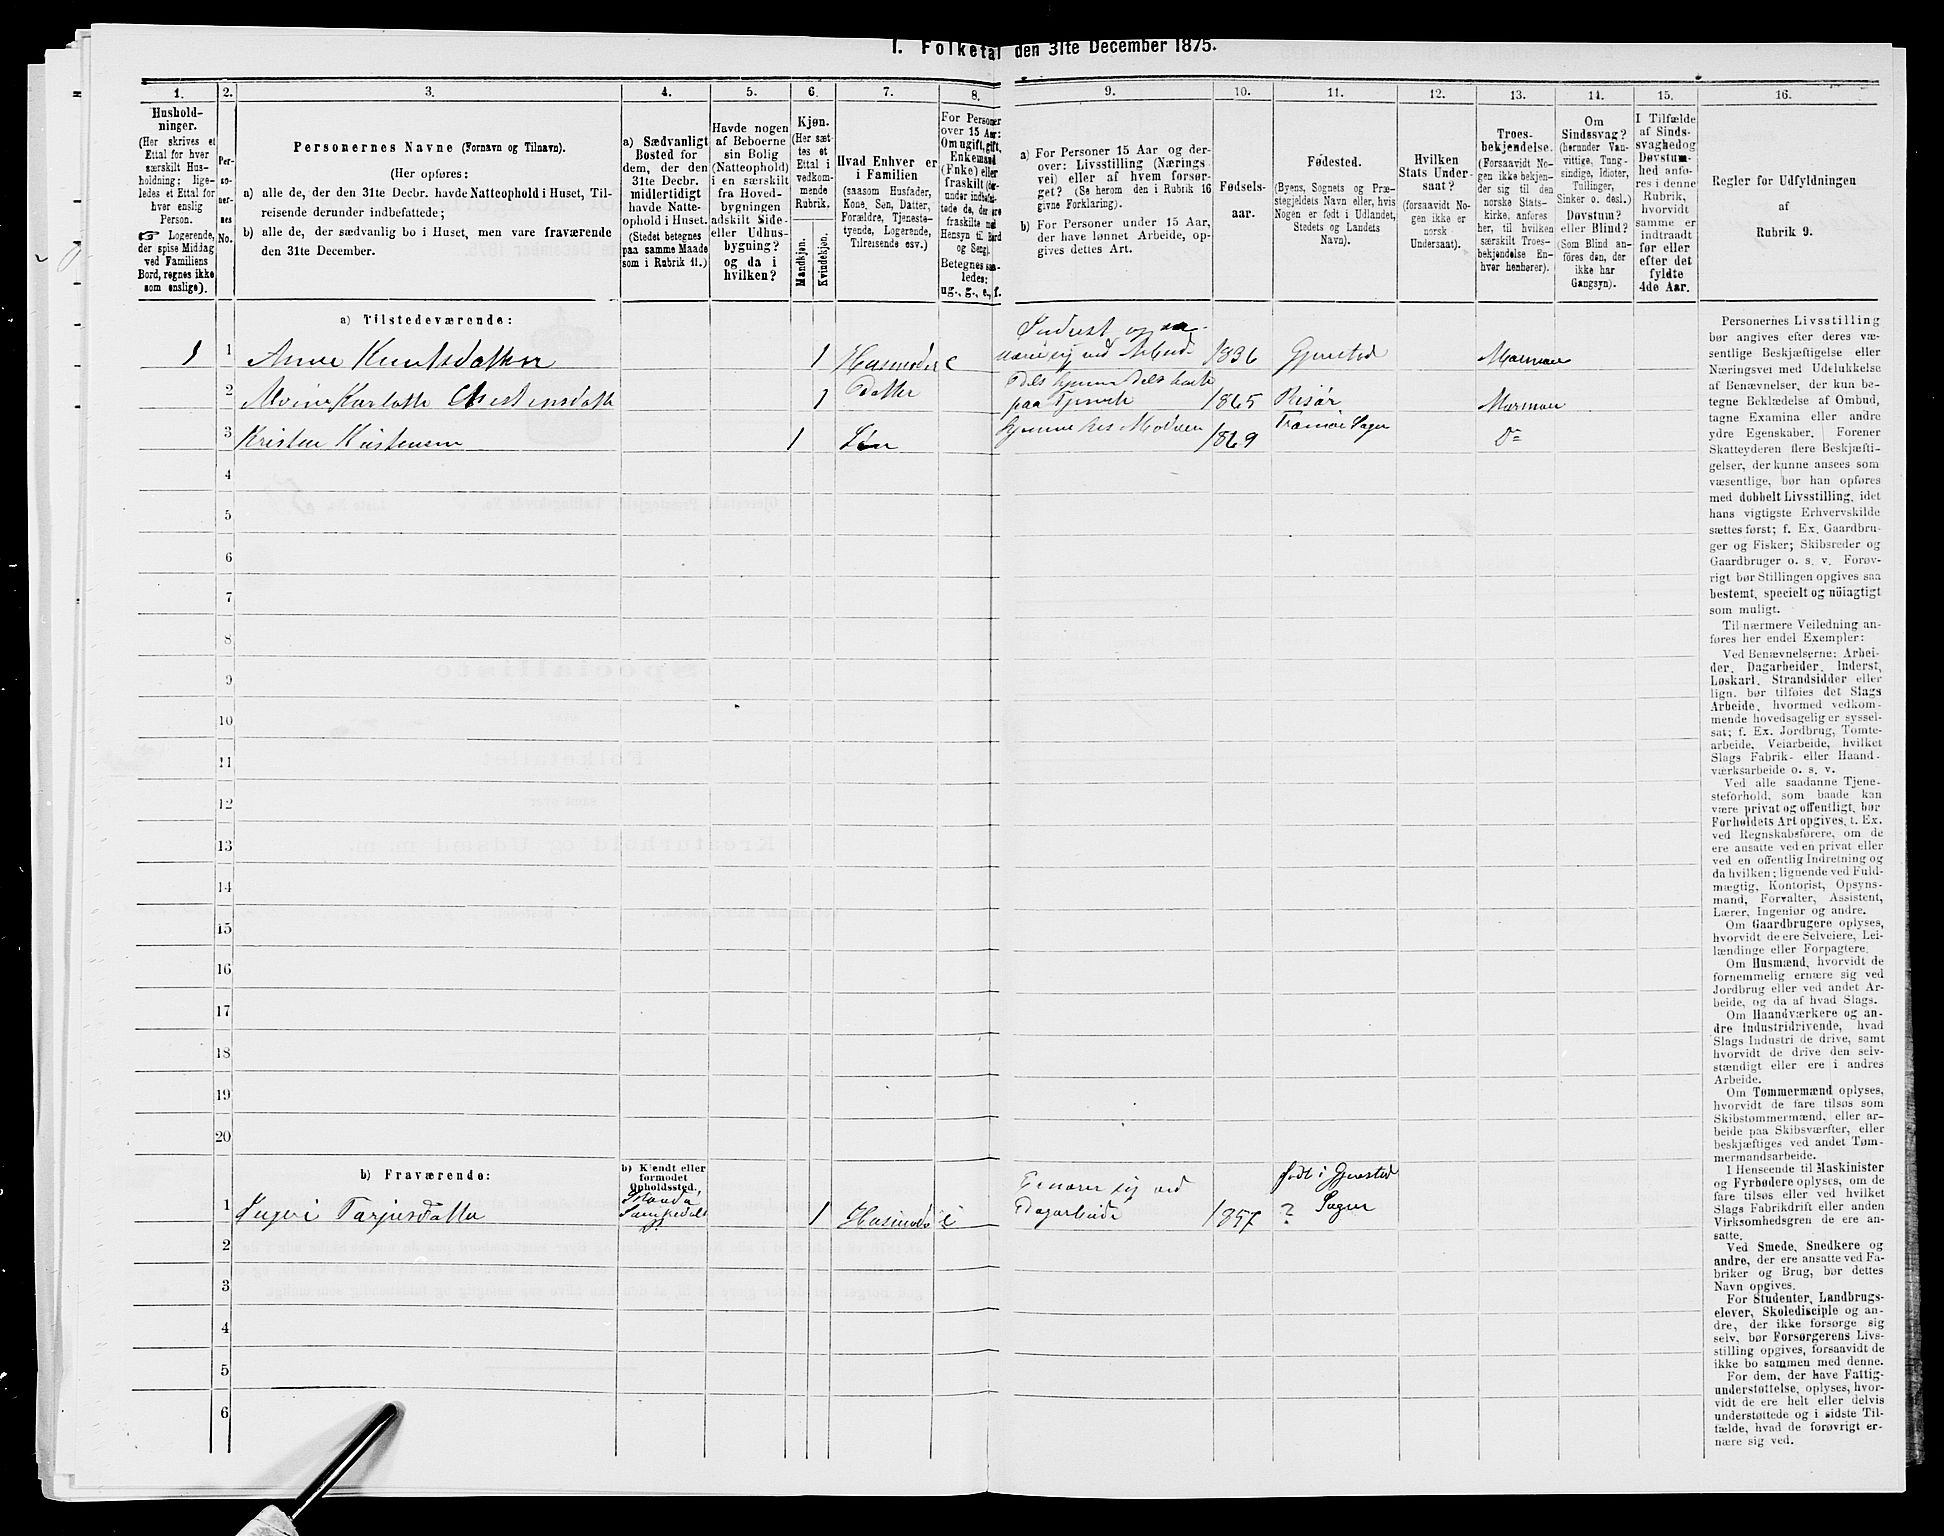 I. Folketal den 31te December 1875.
1. 2. 3. 4. 5. 6. 7. 8. 9. 10. 11. 12. 13. 14. 15. 16.
Hushold-
ninger.
(Her skrives et
Ettal for hver
særskilt Hus-
holdning; lige-
ledes et Ettal for
hver enslig
Person.
☞ Logerende,
der spise Middag
ved Familiens
Bord, regnes ikke
som enslige).
Per-
so-
ner-
nes
No.
Personernes Navne (Fornavn og Tilnavn).
(Her opføres:
a) alle de, der den 31te Decbr. havde Natteophold i Huset, Til-
reisende derunder indbefattede;
b) alle de, der sædvanlig bo i Huset, men vare fraværende
den 31te December.
a) Sædvanligt
Bosted for
dem, der den
31te Decbr.
midlertidigt
havde Natte-
ophold i Huset.
(Stedet betegnes
paa samme Maade
som i Rubrik 11.)
Havde nogen
af Beboerne
sin Bolig
(Natteophold)
i en særskilt
fra Hoved-
bygningen
adskilt Side-
eller Udhus-
bygning?
og da i
hvilken?
Kjøn.
(Her sæt-
tes et
Ettal i
vedkom-
mende
Rubrik.
Mandkjøn.
Kvindekjøn.
Hvad Enhver er
i Familien
(saasom Husfader,
Kone, Søn, Datter,
Forældre, Tjeneste-
tyende, Logerende,
Tilreisende osv.)
For Personer
over 15 Aar:
Om ugift, gift,
Enkemand
(Enke) eller
fraskilt
Hensyn til Bord
og Seng).
Betegnes saa-
ledes:
ug., g., e., f.
a) For Personer 15 Aar og der-
over: Livsstilling (Nærings
vei) eller af hvem forsør-
get? (Se herom den i Rubrik 16
givne Forklaring).
b) For Personer under 15 Aar,
der have lønnet Arbeide, op-
gives dettes Art.
Fødsels-
aar.
Fødested.
(Byens, Sognets og Præ-
stegjeldets Navn, eller hvis
Nogen er født i Udlandet,
Stedets og Landets
Navn).
Hvilken
Stats Under-
saat?
(forsaavidt No-
gen ikke er
norsk
Undersaat).
Troes-
bekjendelse.
(Forsaavidt No-
gen ikke bekjen-
der sig til den
norske Stats-
kirke, anføres
her, til hvilken
særskilt Troes-
bekjendelse En-
hver henhører).
Om
Sindssvag?
(herunder Van-
vittige, Tung-
sindige, Idioter,
Tullinger,
Sinker o. desl.)
Døvstum?
eller Blind?
(Som Blind an-
føres den, der
ikke har
Gangsyn).
I Tilfælde
af Sinds-
svaghed og
Døvstum-
hed anfø-
res i denne
Rubrik,
hvorvidt
samme er
indtraadt
før eller
efter det
fyldte
4de Aar.
Regler for Udfyldningen
af
Rubrik 9.
a) Tilstedeværende:
Inderst og
1 1 Anne Knutsdatter 1 Husmoder e ved Arbeid 1836 Gjerestad Mormon
2 Alvine Karlotte 1 Datter paa 1865 Risør Mormon
3 Kristen Kristensen 1 Søn hjemme hos Moderen 1869 Do
4
5
6
7
8
9
10
11
12
13
14
15
16
17
18
19
20
b) Fraværende:
b) Kjendt eller
formodet
Opholdssted.
1 Ingeri Tarjesdatter 1 Husmoder e Ernærer sig ved Dagarbeide født i Gjerestad ? Sogn
2
3
4
5
6
Personernes Livsstilling
bør angives efter deres væ-
sentlige Beskjæftigelse eller
Næringsvei med Udelukkelse
af Benævnelser, der kun be-
tegne Beklædelse af Ombud,
tagne Examina eller andre
ydre Egenskaber. Forener
Skatteyderen flere Beskjæfti-
gelser, der kunne ansees som
væsentlige, bør han opføres
med dobbelt Livsstilling, idet
hans vigtigste Erhvervskilde
sættes først; f. Ex. Gaardbru-
ger og Fisker; Skibsreder og
Gaardbruger o. s. v. Forøv-
rigt bør Stillingen opgives saa
bestemt, specielt og nöiagtigt
som muligt.
Til nærmere Veiledning an-
føres her endel Exempler:
Ved Benævnelserne: Arbei-
der, Dagarbeider, Inderst,
Løskarl, Strandsidder eller
lign. bør tilføies det Slags
Arbeide, hvormed vedkom-
mende hovedsagelig er syssel-
sat; f. Ex. Jordbrug, Tomte-
arbeide, Veiarbeide, hvilket
Slags Fabrik- eller Haand-
værksarbeide o. s. v.
Ved alle saadanne Tjene-
steforhold, som baade kan
være privat og offentligt, bør
Forholdets Art opgives, t. Ex.
ved Regnskabsførere, om de
ere ansatte ved en privat eller
ved en offentlig Indretning og
da hvilken; lignende ved Fuld-
mægtig, Kontorist, Opsyns-
mand, Forvalter, Assistent,
Lærer, Ingeniør og andre.
Om Gaardbrugere oplyses,
hvorvidt de ere Selveiere, Lei-
lændinge eller Forpagtere.
Om Husmænd, hvorvidt de
fornemmelig ernære sig ved
Jordbrug eller ved andet Ar-
beide, og da af hvad Slags.
Om Haandværkere og an-
dre Industridrivende, hvad
Slags Industri de drive, samt
hvorvidt de drive den selv-
stændigt eller ere i andres
Arbeide.
Om Tømmermænd oplyses,
hvorvidt de fare tilsøs som
Skibstømmermænd, eller ar-
beide paa Skibsværfter, eller
beskjæftiges ved andet Tøm-
mermandsarbeide.
I Henseende til Maskinister
og Fyrbødere oplyses, om de
fare tilsøs eller ved hvilket
Slags Fabrikdrift eller anden
Virksomhedsgren de ere an-
satte.
Ved Smede, Snedkere og
andre, der ere ansatte ved Fa-
briker og Brug, bør dettes
Navn opgives.
For Studenter, Landbrugs-
elever, Skoledisciple og an-
dre, der ikke forsørge sig
selv, bør Forsørgerens Livs-
stilling opgives, forsaavidt de
ikke bo sammen med denne.
For dem, der have Fattig-
understøttelse, oplyses, hvor-
vidt de ere helt eller delvis
understøttede og i sidste Til-
fælde, hvad de forøvrigt er-
nære sig ved.